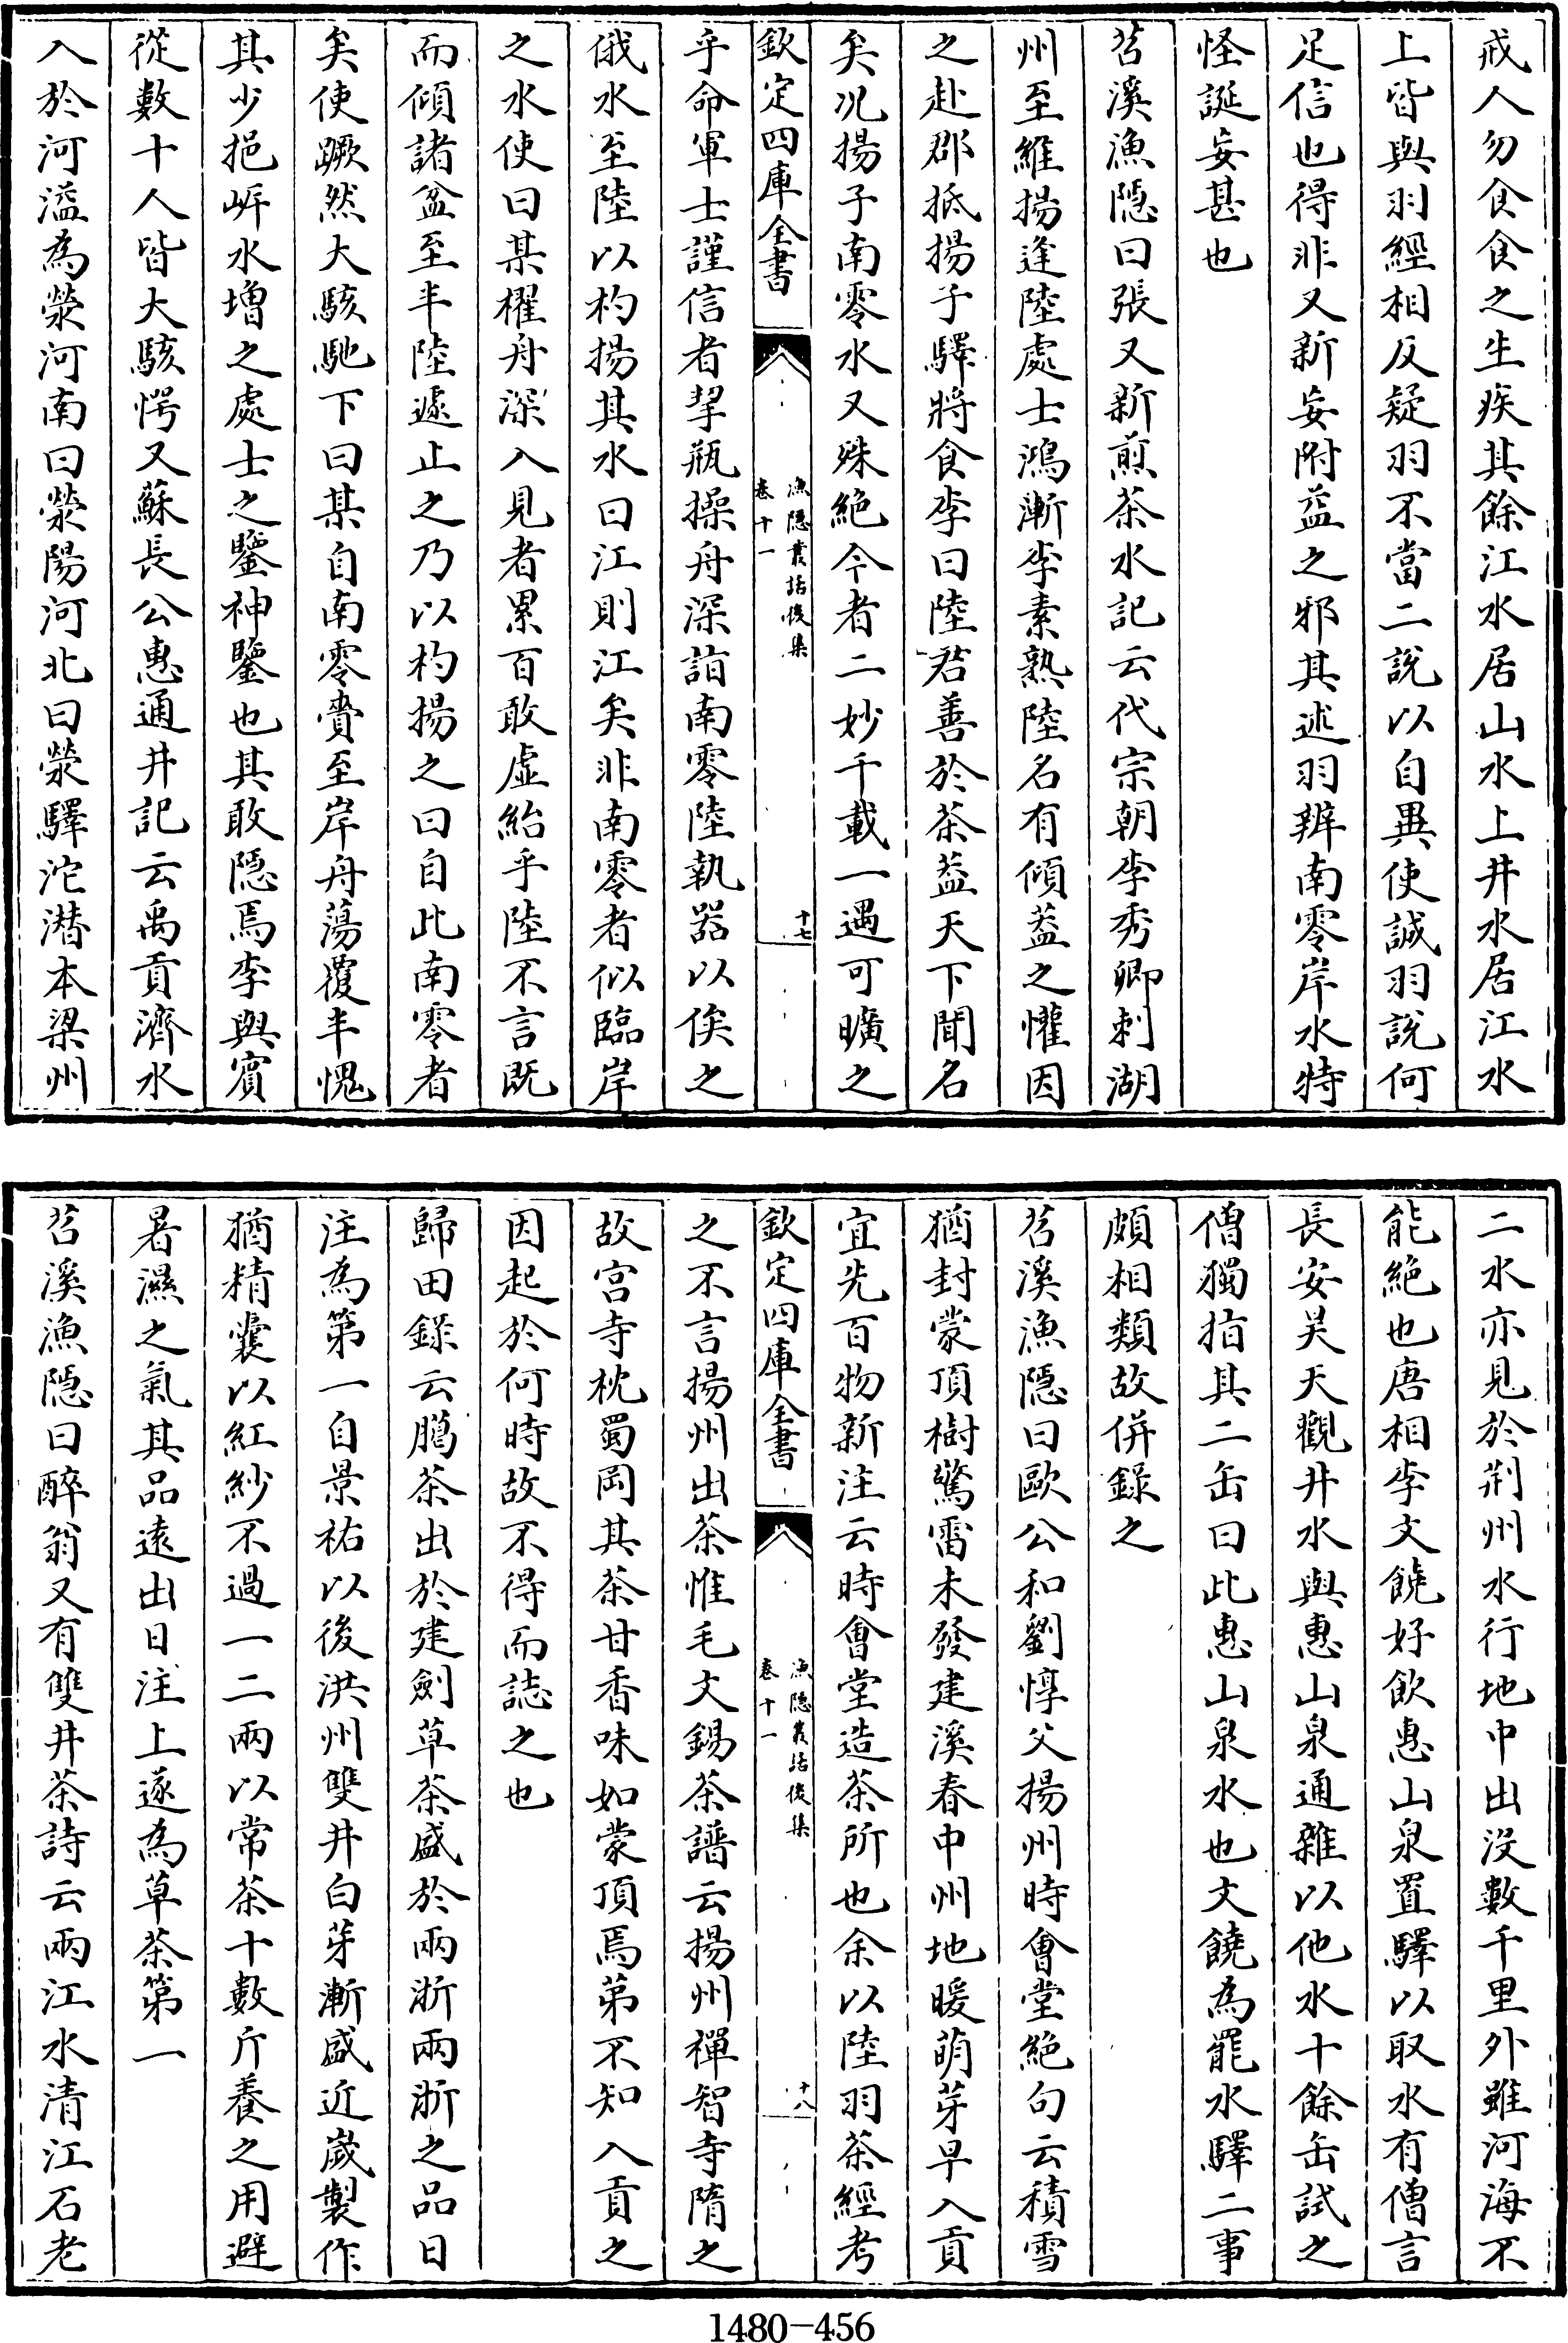 戒人勿食食之生疾其餘江水居山水上井水居江水
上皆與羽經相反疑羽不當二說以自異使誠羽說何
足信也得非又新妄附益之邪其述羽辨南零岸水特
怪誕妄甚也
苕溪漁隱曰張又新煎茶水記云代宗朝李秀卿刺湖
州至維揚逢陸處士鴻漸李素熟陸名有傾葢之懽因
之赴郡抵揚子驛將食李曰陸君善於茶葢天下聞名
矣况揚子南零水又殊絶今者二妙千載一遇可曠之
欽定四庫全書
漁隱叢話後集
卷十一
十七
乎命軍士謹信者挈瓶操舟深詣南零陸執器以俟之
俄水至陸以杓揚其水曰江則江矣非南零者似臨岸
之水使曰某櫂舟深入見者累百敢虚紿乎陸不言既
而傾諸盆至半陸遽止之乃以杓揚之曰自此南零者
矣使蹶然大駭馳下曰某自南零賫至岸舟蕩覆半愧
其少挹岍水增之處士之鑒神鑒也其敢隱焉李與賓
從數十人皆大駭愕又蘇長公惠通井記云禹貢濟水
入於河溢為滎河南曰滎陽河北曰滎驛沱潛本梁州
二水亦見於荆州水行地中出没數千里外雖河海不
能絶也唐相李文饒好飲惠山泉置驛以取水有僧言
長安昊天觀井水與惠山泉通雜以他水十餘缶試之
僧獨指其二缶曰此惠山泉水也文饒為罷水驛二事
頗相類故併錄之
苕溪漁隱曰歐公和劉惇父揚州時會堂絶句云積雪
猶封蒙頂樹驚雷未發建溪春中州地暖萌芽早入貢
宜先百物新注云時會堂造茶所也余以陸羽茶經考
欽定四庫全書
漁隱叢話後集
卷十一
十八
之不言揚州出茶惟毛文錫茶譜云揚州禪智寺隋之
故宫寺枕蜀岡其茶甘香味如蒙頂焉第不知入貢之
因起於何時故不得而誌之也
歸田錄云臈茶出於建劍草茶盛於兩浙兩浙之品日
注為第一自景祐以後洪州雙井白芽漸盛近嵗製作
猶精囊以紅紗不過一二兩以常茶十數斤養之用避
暑濕之氣其品遠出日注上遂為草茶第一
苕溪漁隱曰醉翁又有雙井茶詩云兩江水清江石老
1480-456